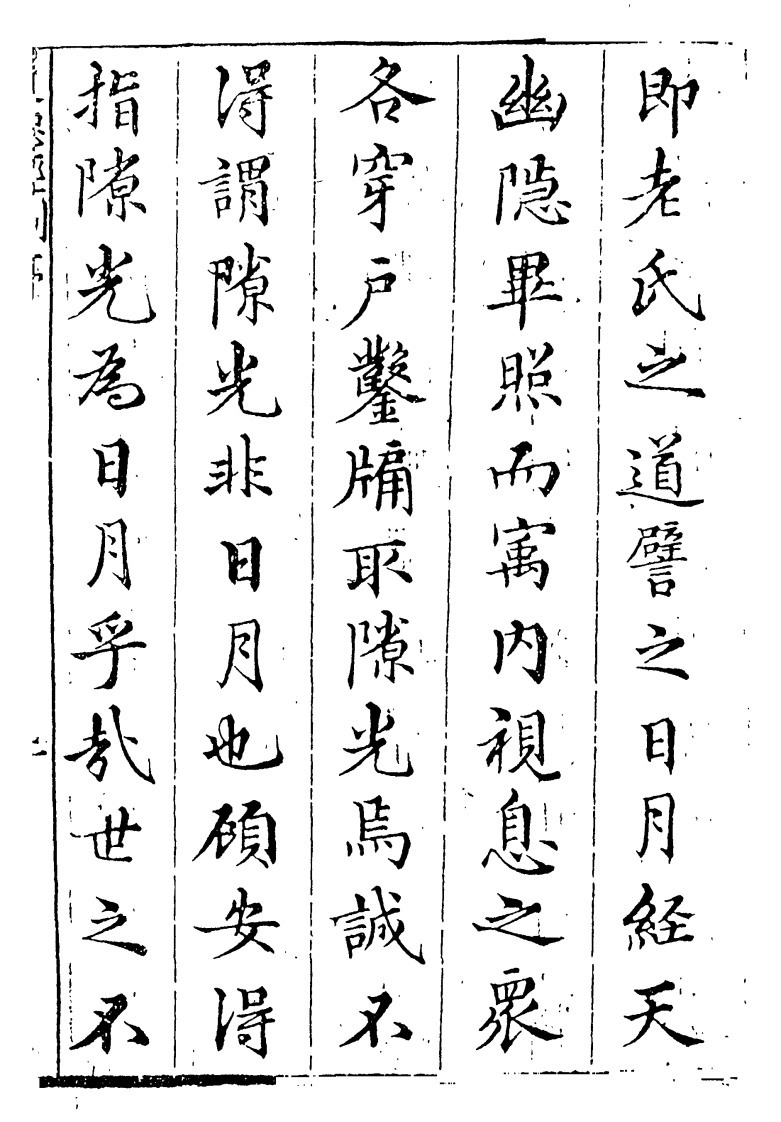 即老氏之道譬之日月經天
幽隱畢照而寓内視息之衆
各穿户鑿牖取隙光焉誠不
得謂隙光非日月也顧安得
指隙光為日月孚哉世之不